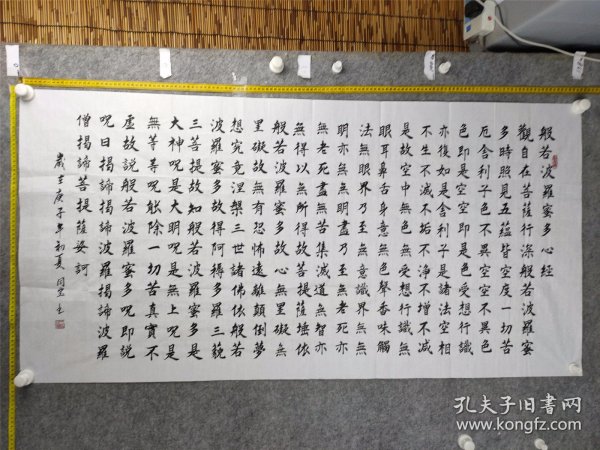 般若波羅蜜多心經
觀自在菩薩行深般若波羅蜜
多時照見五蘊皆空度一切苦
厄舍利子色不異空空不異色
色即是空空即是色受想行識
亦復如是舍利子是諸法空相
不生不滅不垢不淨不增不減
是故空中無色無受想行識無
眼耳鼻舌身意無色聲香味觸
法無眼界乃至無意識界無無
明亦無無明盡乃至無老死亦
無老死盡無苦集滅道無智亦
無得以無所得故菩提薩埵依
般若波羅蜜多故心無罣礙無
罣礙故無有恐怖遠離顛倒夢
想究竟涅槃三世諸佛依般若
波羅蜜多故得阿耨多羅三藐
三菩提故知般若波羅蜜多是
大神呪是大明呪是無上呪是
無等等呪能除一切苦真實不
虛故說般若波羅蜜多呪即說
呪曰揭諦揭諦波羅揭諦波羅
僧揭諦菩提薩婆訶
庚子年初夏
孔夫子旧书网
www.kongfz.com